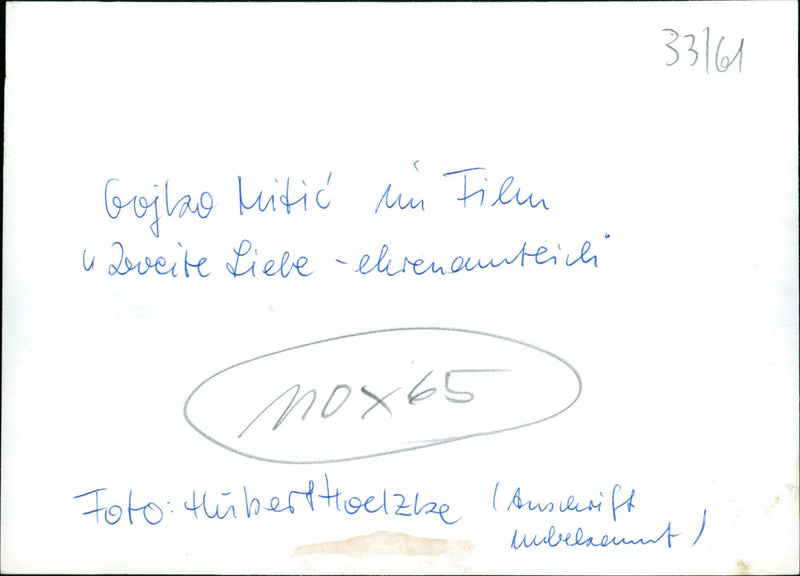 33/61
Gojko Mitić im Film
"Zweite Liebe - ehrenamtlich"
110 x 65
Foto: Hubert Hoelzke (Anschrift
unbekannt)